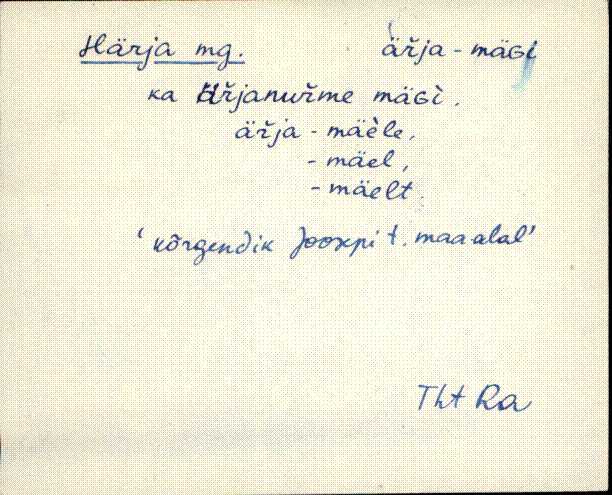 Härja mg. äřja-mäGi
ka Äřjanuřme mäGì.
äřja-mäèle,
-mäel,
-mäelt.
'kõrgendik Joorpi t. maaalal'
Tht Ra